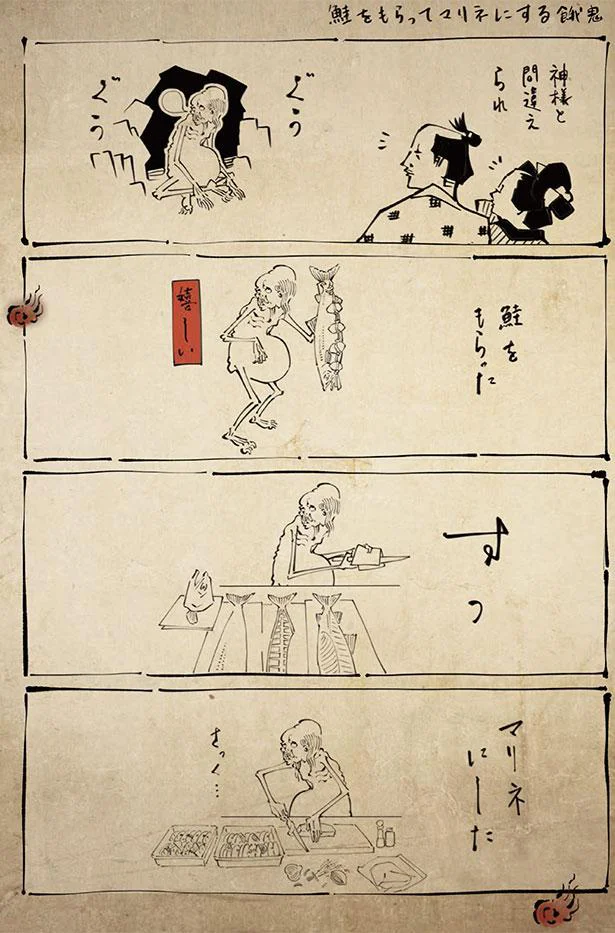 鮭をもらってマリネにする餓鬼
神様と
間違え
られ
ぐう
ぐう
鮭を
もらった
嬉しい
すっ
マリネ
にした
さっく…